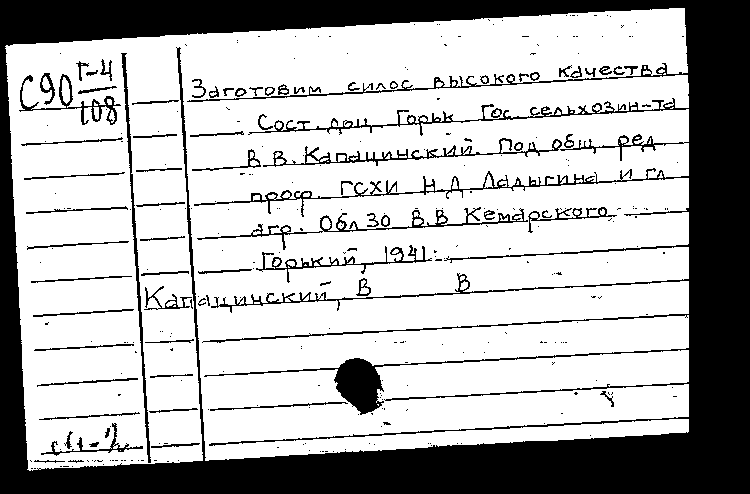 С90 Г-4
108
Заготовим силос высокого качества.
Сост. доц. Горьк Гос сельхозин-та
В.В. Капацинский. Под общ. ред
проф. ГСХИ Н.Д. Ладыгина и гл
агр. ОблЗО В.В Кемарского
Горький, 1941.
Капацинский, В В